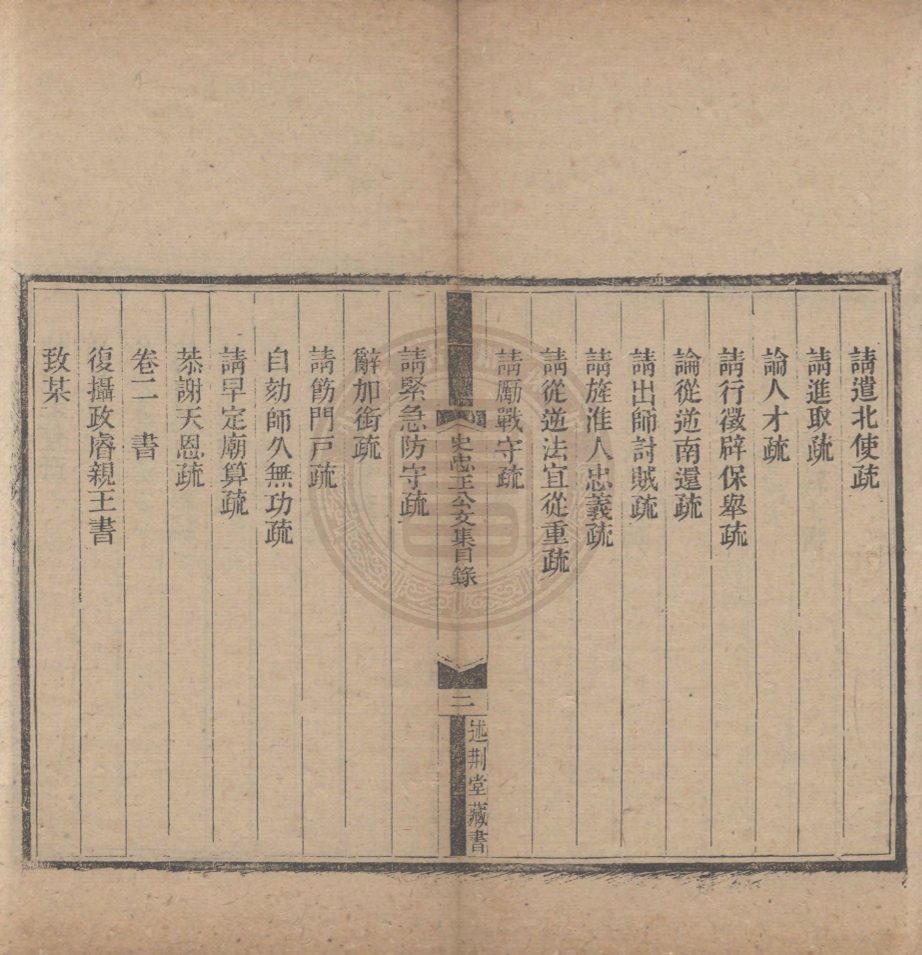 請遣北使疏
請進取疏
論人才疏
請行徵辟保舉疏
論從逆南還疏
請出師討賊疏
請旌淮人忠義疏
請從逆法宜從重疏
請勵戰守疏
史忠正公文集目錄
二
述荆堂藏書
請緊急防守疏
辭加銜疏
請飭門戸疏
自劾師久無功疏
請早定廟算疏
恭謝天恩疏
卷二 書
復攝政睿親王書
致某